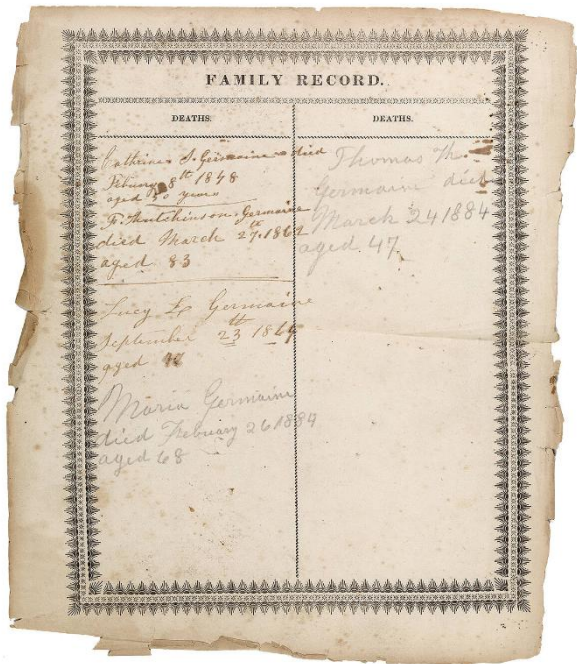 FAMILY RECORD.
DEATHS.
Catherine S. Germaine died
February 8th 1848
aged years
F. Hutchinson Germaine
died March 27th 1862
aged 83
Lucy E Germaine
September 23th 1864
aged
Maria Germaine
died February 26 1884
aged 68
DEATHS.
Thomas H.
Germaine died
March 24 1884
aged 47